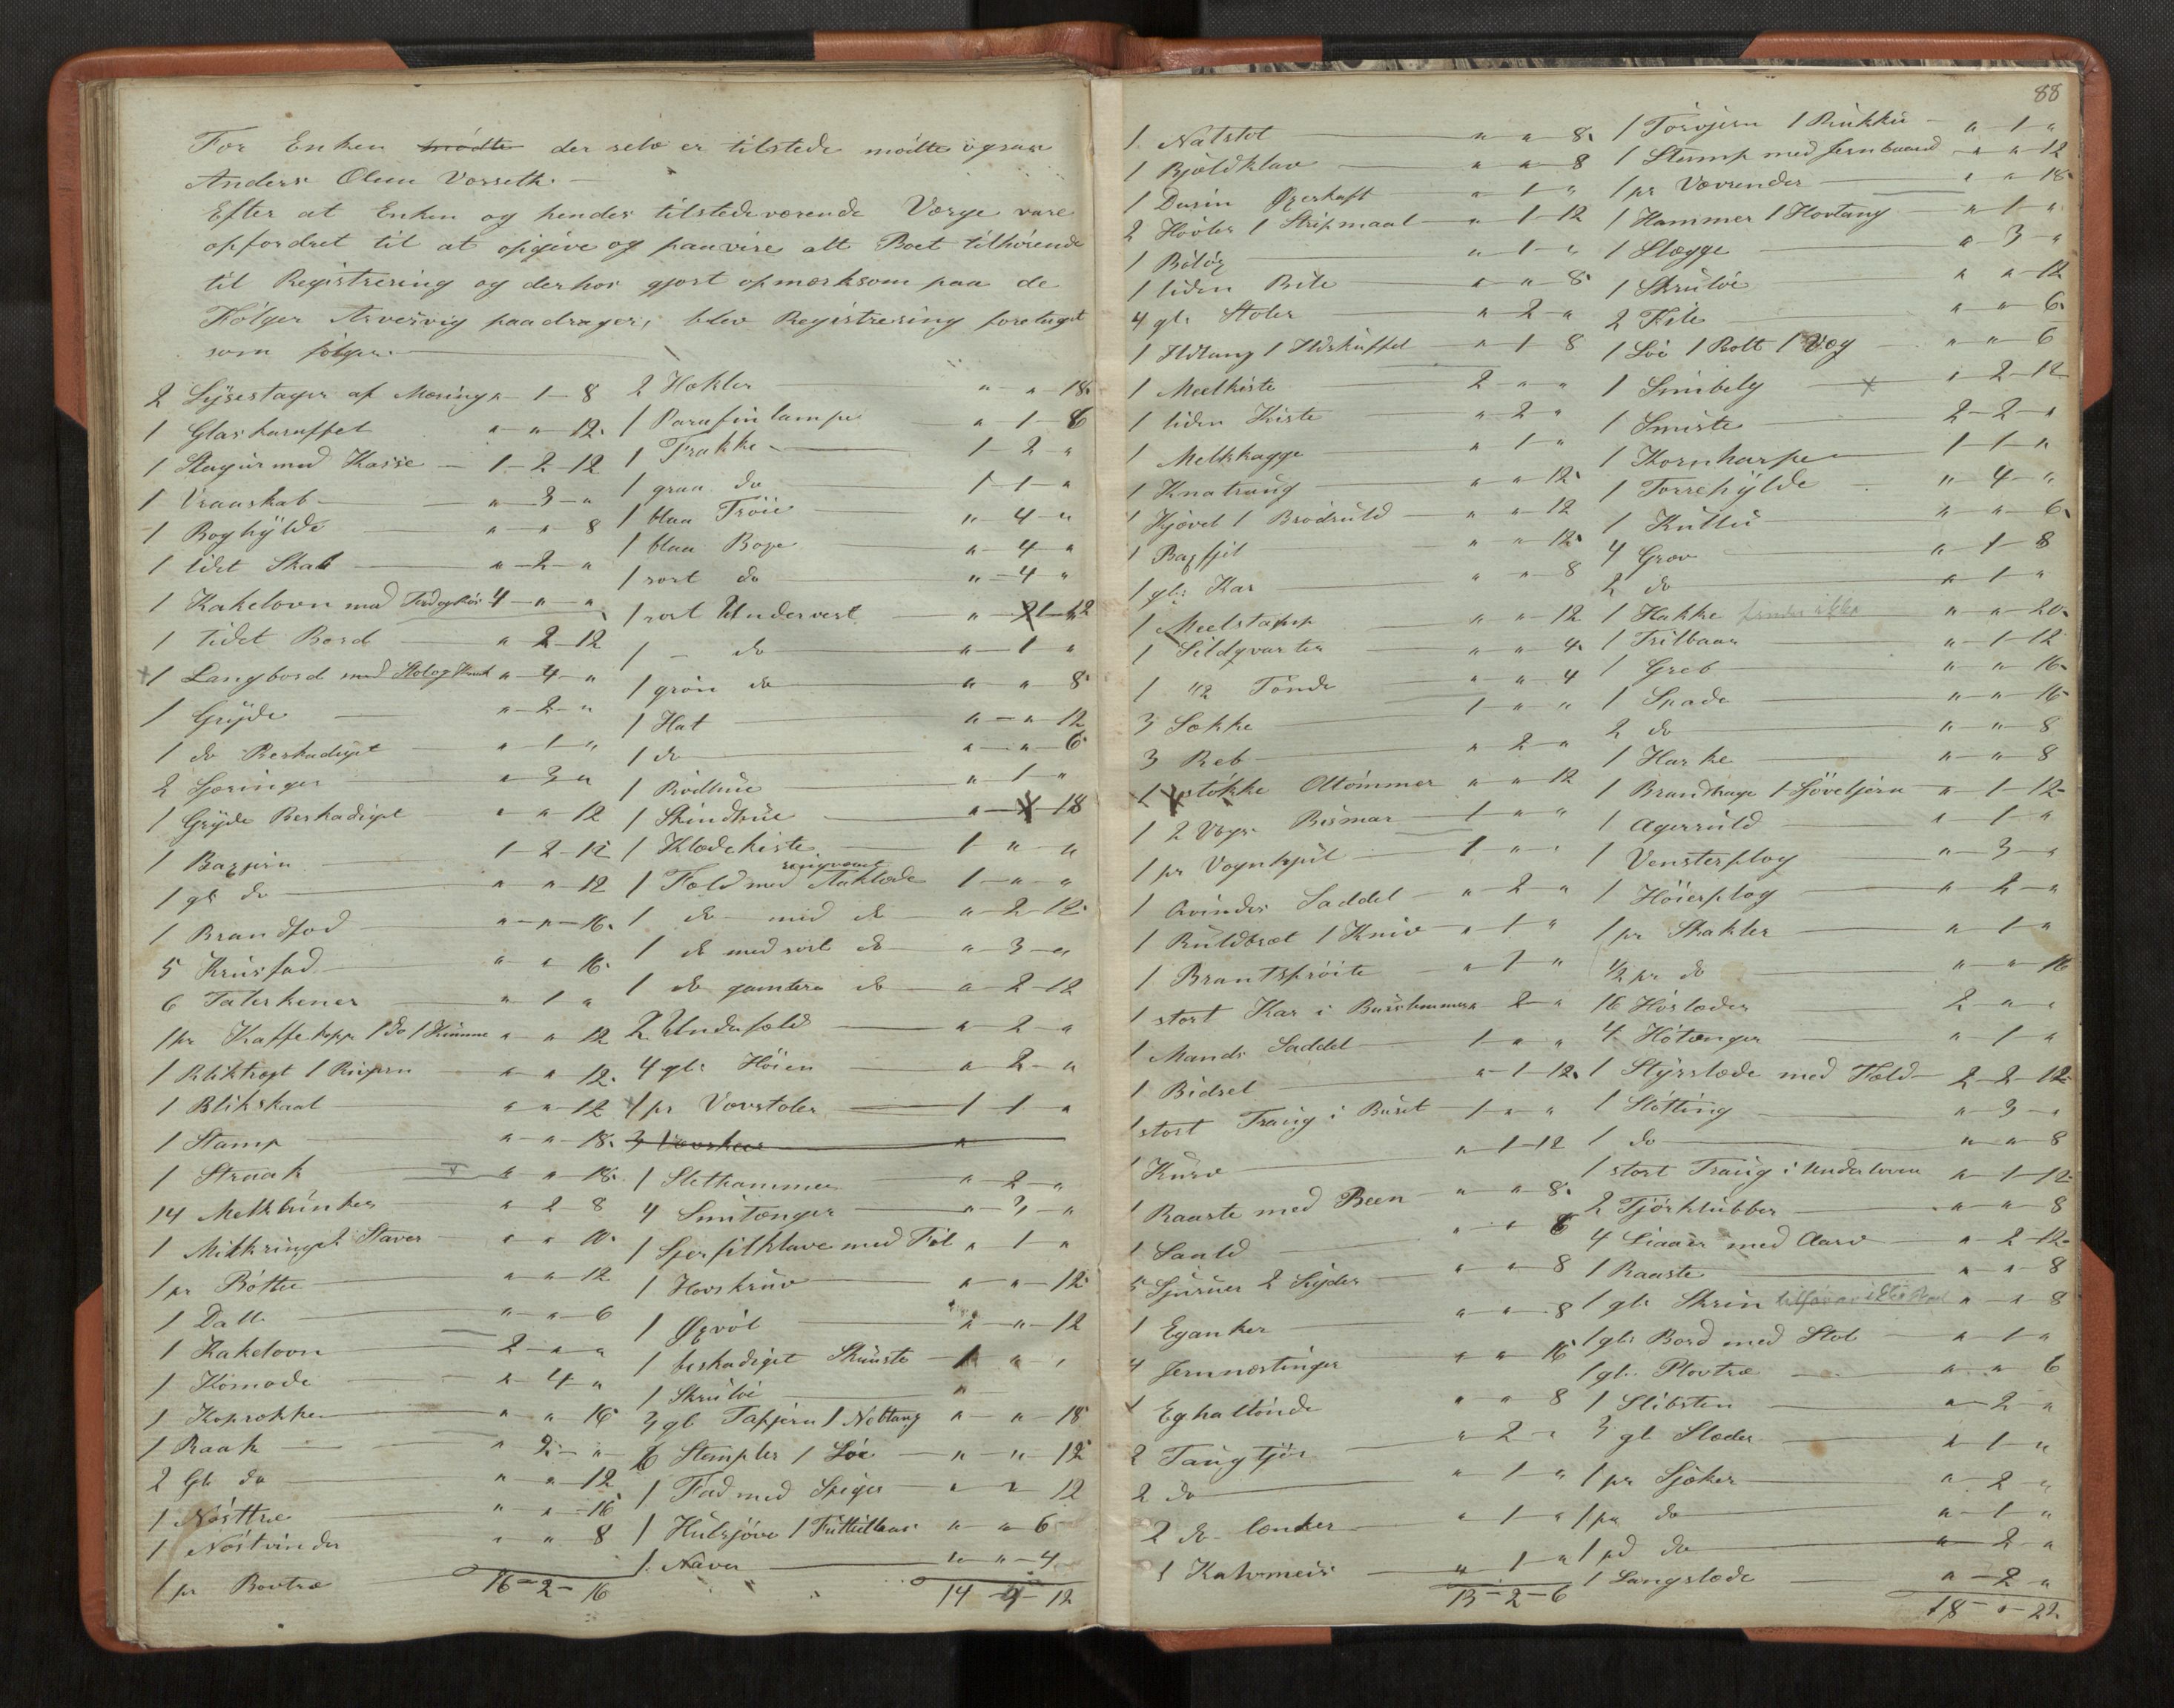 For Enken mødte der selv er tilstede mødte ogsaa
Anders Olsen Vasseth.
Efter at Enken og hendes tilstedeværende Værge vare
opfordret til at opgive og paavise alt Boet tilhørende
til Registrering og derhos gjort opmærksom paa de
Følger Arvesvig paadrager, blev Registrering foretaget
som følger.
2 Lysestager af Messing " - 1 - 8
1 Glaskaruffel " " 12.
1 Stagur med Kasse - 1 - 2 - 12
1 Vraaskab " - 3 - "
1 Boghylde " " 8
1 lidet Skab " - 2 - "
1 Kakelovn med Fod og Rør 4 - " - "
1 lidet Bord " 2 - 12
1 Langbord med Stol og Krak " - 4 - "
1 Gryde " - 2 - "
1 do Beskadiget " - 1 - "
2 " - 3 - "
1 Gryde Beskadiget " " 12
1 Bagjern 1 - 2 - 12
1 gl do " " 12
1 Brandfod " - " - 16.
5 Krusfad " " 16.
6 Talerkener " - 1 - "
1 pr Kaffekopper 1 do 1 " " 12
1 Bliktragt 1 Rivjern " - " 12.
1 Blikskaal " - " - 12
1 Stamp " - " - 18.
1 Straak " - " - 18.
14 Melkbunker " 2 8
1 2 Staver " - " 10.
1 pr Bøtter " " 12
1 Dall " - " - 6
1 Kakelovn 2 - " - "
1 Komode " - 4 - "
1 Koprokke " " 16
1 Raak " 2 - "
2 Gl do " " 12
1 Nøsttræ " " 16
1 Nøstvinder " " 8
1 pr Bovtræ
16 - 2 - 16
2 Hekler " - " - 18.
1 Parafinlampe " 1 - 6
1 Frakke 1 - 2 - "
1 graa do 1 - 1 - "
1 blaa Trøie " 4 - "
1 blaa Boxe " - 4 - "
1 sort do " - 4 "
1 sort Undervest " - 1 - 12
1 - do " - 1 "
1 grøn do " " 8.
1 Hat " - " 12
1 do " - " 6
1 " 1 - "
1 Skindhue " - 18
1 Klædekiste 1 " "
1 Fæld med Aaklæde 1 - " - "
1 do med do " 2 - 12.
1 do med sort do " 3 - "
1 do gamlere do " - 2 - 12
2 Underfæld " - 2 - "
4 gle Høien " - 2 - "
1 pr Vævstoler 1 - 1 - "
3 Vævskeer "
1 Slethammer " - 2 - "
4 Smitænger " - 3 - "
1 med Fil " 1 - "
1 Hovskruv " - " - 12.
1 Øxvøl " - " - 12
1 beskadiget Skruste 1 " "
1 Skruløi "
3 gl Tapjern 1 Nebtang " - " - 18
6 Stempler 1 Løe " " - 12
1 Fad med Spiger " - " 12
1 Hulsjøve 1 " " 6
1 Naver " - 4
14 - 4 - 12
88
1 Natstol " " 8.
1 Bjøldklav " " 8
1 Dusin Øxeskaft " - 1 - "
2 Høvler 1 Stripmaal " - 1 - 12
1 Biløx " - 1 - "
1 liden Bile " " - 8.
4 gle Stoler " - 2 - "
1 Ildtang 1 Ildskuffel " - 1 8
1 Meelkiste 2 - " "
1 liden Kiste " 2 "
1 Melkkagge " 1 "
1 Knatraug " " 12.
1 Kjævel 1 Brødruld " " 12
1 Bagfjel " " - 12.
1 gle Kar " " 8
1 Meelstamp " " 12
1 Sildqvarter " - " 4.
1 1/2 Tønde " - " 4
3 Sække 1 " "
3 Reb " 2 - "
1 stokke Altømmer " " - 12
1 2 Vogs Bismar 1 - " "
1 pr Vognhjul 1 " - "
1 Qvindes Saddel " - 2 "
1 Ruldbræt 1 Kniv " - 1 "
1 Brantsprøite " - 1 "
1 stort Kar i " 2 - "
1 Mands Saddel 1 - " "
1 Bidsel " - 1 - 12.
1 stort Traug i Buret 1 - " "
1 Kurv " - 1 - 12
1 Raaste med Been " - " 8.
1 Saald " " 6
5 2 Lyder " - " 8
1 Eganker " - " 8
4 " - " 16
1 Eghaltønde " - " 8
2 Taugtjør " - 2 "
2 do " - 1 "
2 do lænker " - 1 "
1 Kahrmeis " 1 - "
13 - 2 - 6
1 Torvjern 1 Rukku " 1 "
1 Stamp med Jernbaand " " 12
1 pr Vævrender " " 18.
1 Hammer 1 Hovtang " 1 "
1 Slægge " 3 - "
1 Skruløi " " - 12
2 File " " - 6.
1 Løe 1 Bolt 1 Væg " " 6
1 Smibelg " 2 - 12
1 Smiste 2 - 2 - "
1 Kornharpe 1 - 1 - "
1 Torrehylde " - 4 - "
1 " " - 6.
4 Grev " - 1 - 8
2 do " - 1 "
1 Hakke findes ikke " " 20.
1 Trilbaar " - 1 - 12
1 Greb " " 16.
1 Spade " " 16
2 do " " 8
1 Harke " " 8
1 Brandhage 1 " - 1 - 12.
1 Agerruld " 1 "
1 Vensterplog " - 3 - "
1 Høierplog " - 2 - "
1 pr Skakler " - 1 - "
1/2 pr do " - " 16
16 Høslæder 2 " - "
4 Høtænger " - 1 "
1 Styrslæde med Fæld 2 - 2 - 12.
1 Slotting " - 3 - "
1 do " " 8
1 stort Traug i Underloven " 1 - 12.
2 Tjørklubber " " 8
4 Liaaer med Aarv " - 2 - 12.
1 Raaste " " 8
1 gle Skrin tilhører ikke Boet " " 8
1 gle Bord med Stol " 1 "
1 gle Plovtræ " " 6
1 Slibsten " - 2 "
3 gl Slæder " - 1 - "
1 pr Sjøker " - 2 "
1 pr do " - 1 - "
1 pd do " - 2 - "
1 Langslæde " - 2 - "
18 - " - 22.